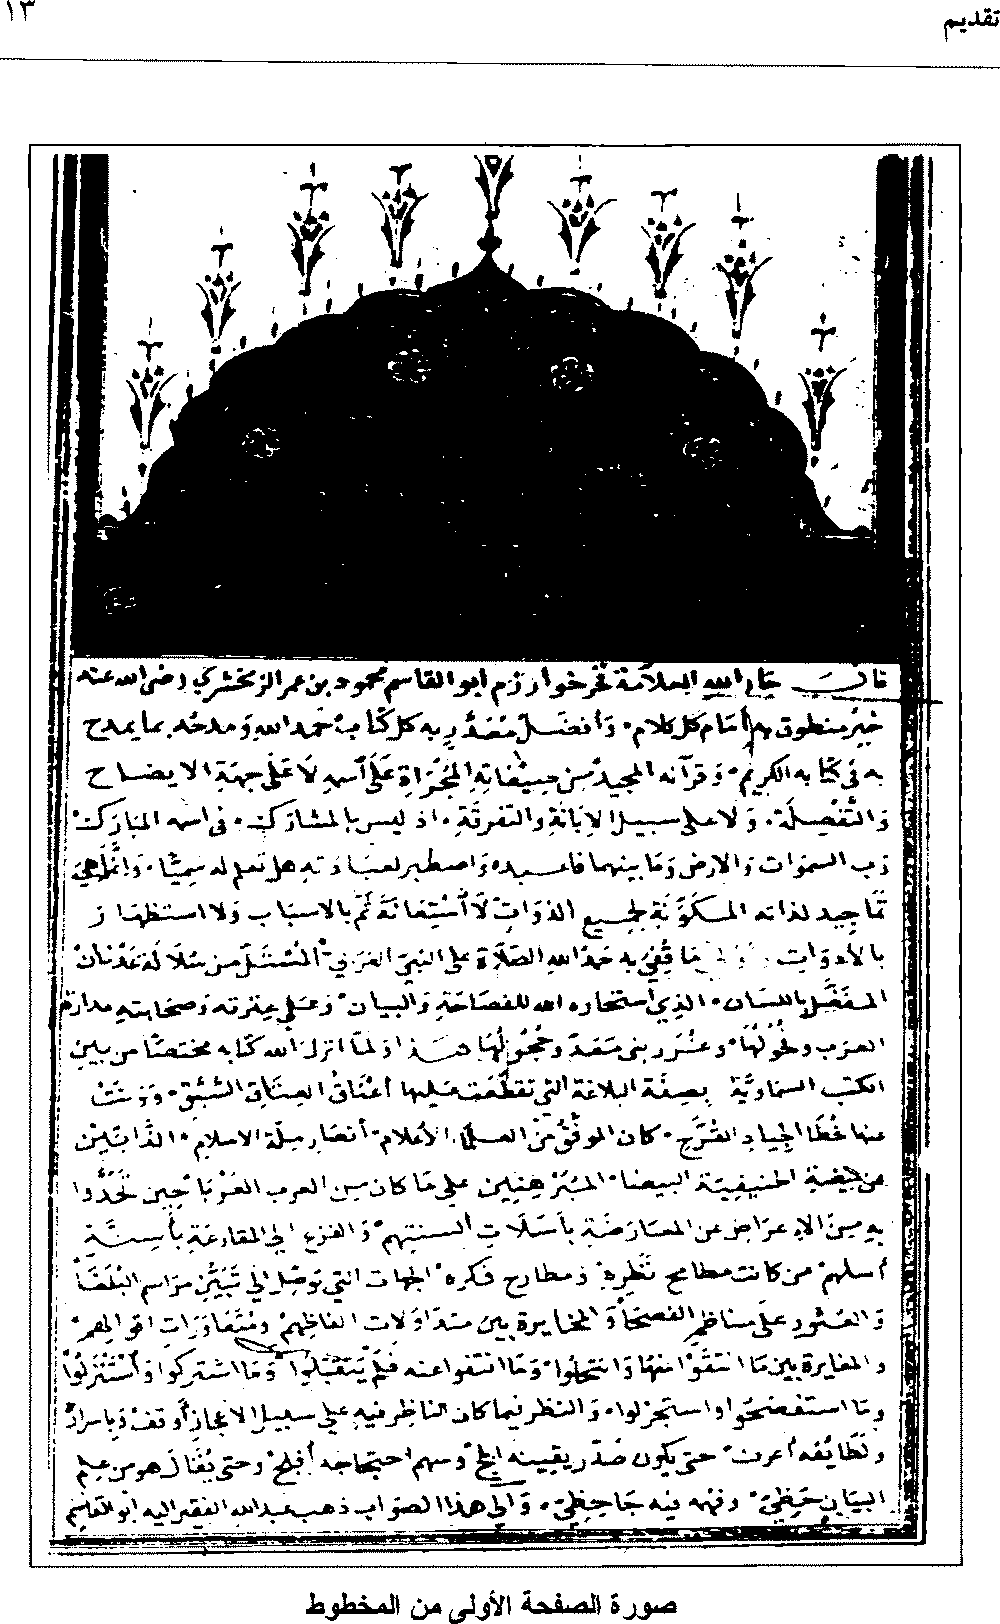 تقديم
١٣
قال جار الله العلامة فخر خوارزم أبو القاسم محمود بن عمر الزمخشري رضي الله عنه
خير منطوق به أمام كل كلام وأفضل مصدر به كل كتاب حمد الله ومدحه بما يمدح
به في كتابه الكريم وقرآنه المجيد من صفاته المجراة على اسمه لا على جهة الايضاح
والتفصلة ولا على سبيل الابانة والتفرقة اذ ليس بالمشارك في اسمه المبارك
رب السموات والارض وما بينهما فاعبده واصطبر لعبادته هل تعلم له سميا وانما هي
تماجيد لذاته المكونة لجميع الذوات لا استعانة ثم بالاسباب ولا استظهار
بالأدوات ما قفي به حمد الله الصلاة على النبي العربي المستل من سلالة عدنان
المفضل باللسان الذي استخاره الله للفصاحة والبيان وعلى عترته وصحابته مدارة
العرب وفحولها وغرر بني معد وحجولها هذا ولما انزل الله كتابه مختصا من بين
الكتب السماوية بصفة البلاغة التي تقطعت عليها أعناق العتاق السبق وونت
عنها خطا الجياد القرح كان الموفق من العلماء الأعلام أنصار ملة الاسلام الذابين
عن بيضة الحنيفية البيضاء المبرهنين على ما كان من العرب العرباء حين تحدوا
به من الاعراض عن المعارضة بأسلات ألسنتهم والفزع الى المقارعة بأسنة
أسلهم من كانت مطامح نظره ومطارح فكره الجهات التي توصل الى تبين مراسم البلغاء
والعثور على مناظم الفصحاء والمخايرة بين متداولات الفاظهم ومتعاورات اقوالهم
والمغايرة بين ما انتقوا منها وانتخلوا وما انتفوا عنه فلم يتقبلوا وما استركوا واستنزلوا
وما استفصحوا واستجزلوا والنظر فيما كان الناظر فيه على سبيل الاعجاز أوقف وباسراره
ولطائفه أعرف حتى يكون صدر يقينه اثلج وسهم احتجاجه أفلج وحتى يقال هو من علم
البيان حظي وفهمه فيه جاحظي والى هذا الصواب ذهب عبد الله الفقير اليه ابو القاسم
صورة الصفحة الأولى من المخطوط